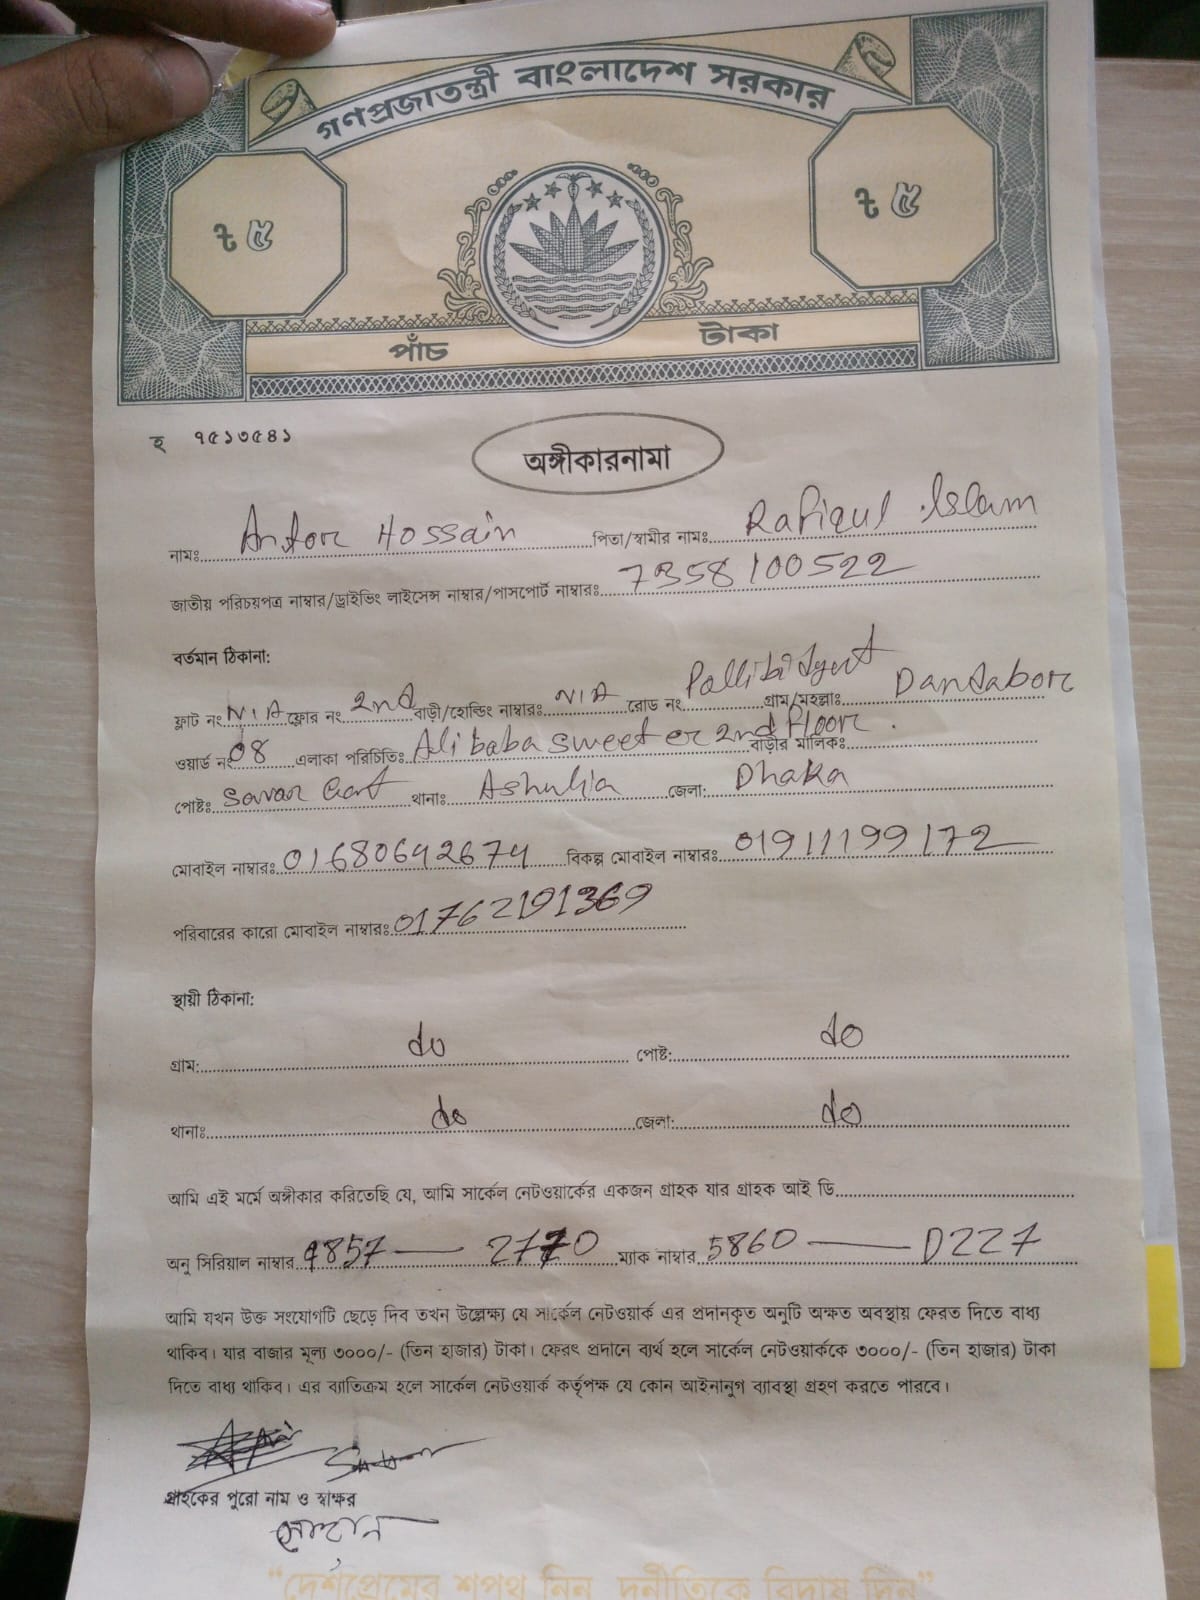 গণপ্রজাতন্ত্রী বাংলাদেশ সরকার
৳ ৫ ৳ ৫
পাঁচ টাকা
হ ৭৫১৩৫৪১
অঙ্গীকারনামা
নামঃ Antor Hossain পিতা/স্বামীর নামঃ Rafiqul Islam
জাতীয় পরিচয়পত্র নাম্বার/ড্রাইভিং লাইসেন্স নাম্বার/পাসপোর্ট নাম্বারঃ 7358100522
বর্তমান ঠিকানা:
ফ্লাট নং N/A ফ্লোর নং 2nd বাড়ী/হোল্ডিং নাম্বারঃ N/A রোড নং Pallibidyut গ্রাম/মহল্লাঃ Dandabor
ওয়ার্ড নং 08 এলাকা পরিচিতিঃ Alibaba sweet er 2nd floor. বাড়ীর মালিকঃ
পোষ্টঃ Savar Cant থানাঃ Ashulia জেলা: Dhaka
মোবাইল নাম্বারঃ 01680642674 বিকল্প মোবাইল নাম্বারঃ 01911199172
পরিবারের কারো মোবাইল নাম্বারঃ 01762191369
স্থায়ী ঠিকানা:
গ্রাম: do পোষ্ট: do
থানাঃ do জেলা: do
আমি এই মর্মে অঙ্গীকার করিতেছি যে, আমি সার্কেল নেটওয়ার্কের একজন গ্রাহক যার গ্রাহক আই ডি
অনু সিরিয়াল নাম্বার 9857 — 2770 ম্যাক নাম্বার 5860 — D227
আমি যখন উক্ত সংযোগটি ছেড়ে দিব তখন উল্লেক্ষ্য যে সার্কেল নেটওয়ার্ক এর প্রদানকৃত অনুটি অক্ষত অবস্থায় ফেরত দিতে বাধ্য
থাকিব। যার বাজার মূল্য ৩০০০/- (তিন হাজার) টাকা। ফেরৎ প্রদানে ব্যর্থ হলে সার্কেল নেটওয়ার্ককে ৩০০০/- (তিন হাজার) টাকা
দিতে বাধ্য থাকিব। এর ব্যাতিক্রম হলে সার্কেল নেটওয়ার্ক কর্তৃপক্ষ যে কোন আইনানুগ ব্যাবস্থা গ্রহণ করতে পারবে।
গ্রাহকের পুরো নাম ও স্বাক্ষর
“দেশপ্রেমের শপথ নিন, দুর্নীতিকে বিদায় দিন”